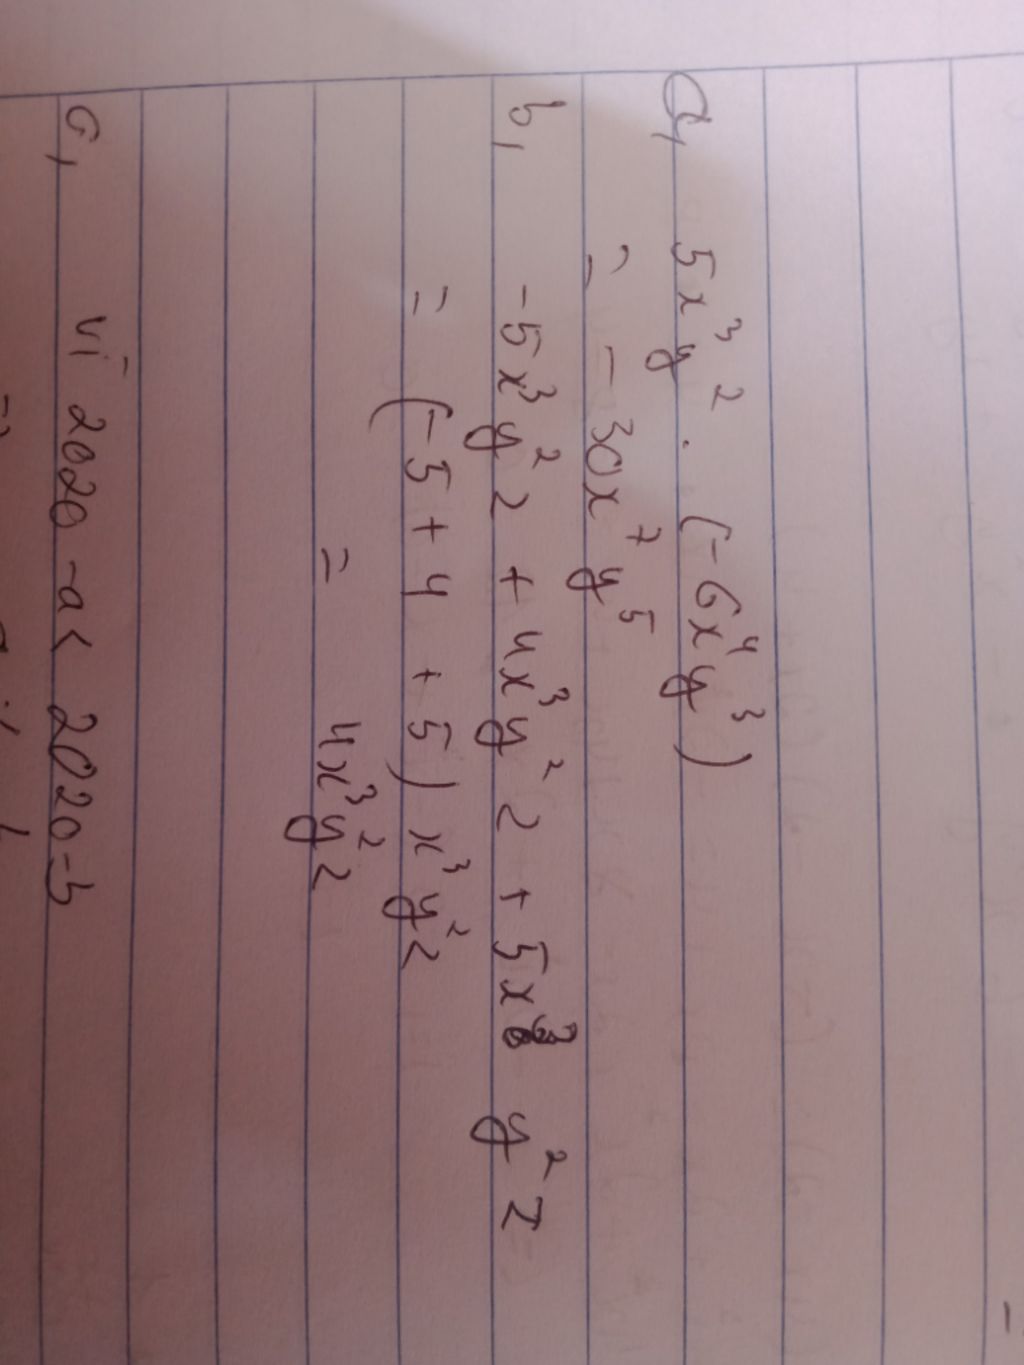 a, 5x³y² . (-6x⁴y³)
= -30x⁷y⁵
b, -5x³y²z + 4x³y²z + 5x³ y²z
= (-5+4+5) x³y²z
= 4x³y²z
c, Vì 2020-a < 2020-b